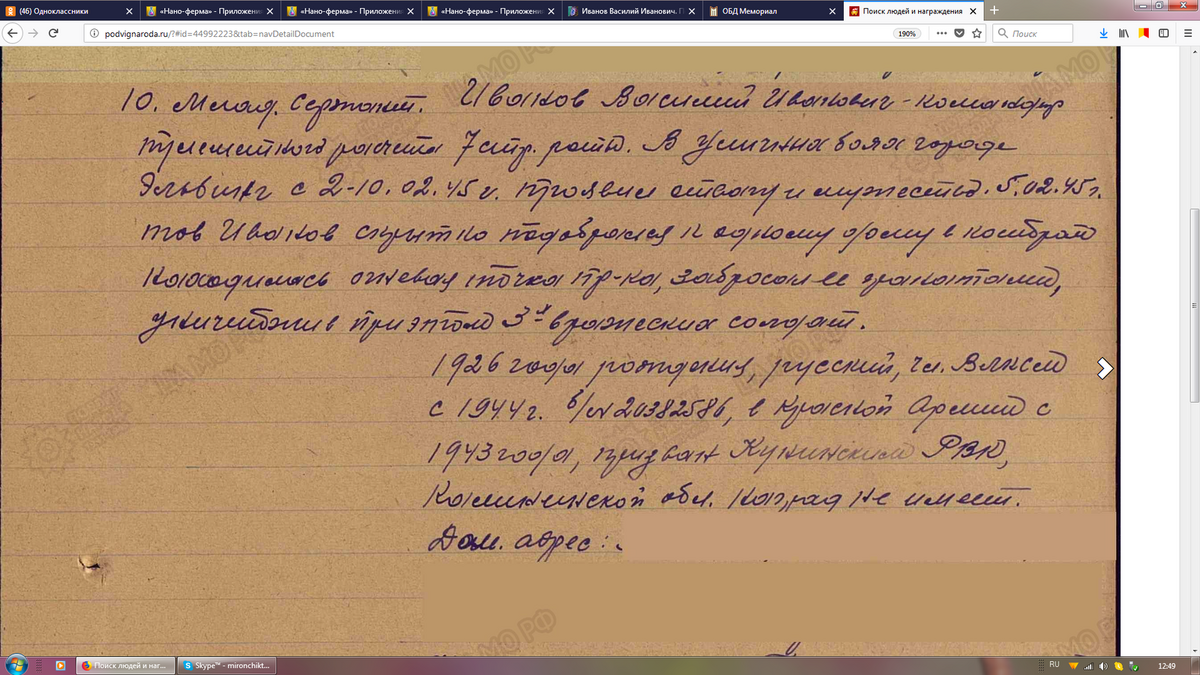 (46) Одноклассники
«Нано-ферма» - Приложение
«Нано-ферма» - Приложение
«Нано-ферма» - Приложение
Иванов Василий Иванович.
ОБД Мемориал
Поиск людей и награждения
podvignaroda.ru/?#id=44992223&tab=navDetailDocument
190%
Поиск
10. Млад. Сержант. Иванов Василий Иванович - командир
пулеметного расчета 7 стр. роты. В уличных боях города
Эльбинг с 2-10.02.45 г. проявил отвагу и мужество. 5.02.45 г.
тов Иванов скрытно подобрался к одному дому в котором
находилась огневая точка пр-ка, забросал ее гранатами,
уничтожив при этом 3х вражеских солдат.
1926 года рождения, русский, чл. ВЛКСМ
с 1944 г. б/№20382586, в Красной Армии с
1943 года, призван Куньинским РВК,
Калининской обл. Наград не имеет.
Дом. адрес:
ЦАМО РФ
Поиск людей и наг...
Skype™ - mironchikt...
RU
12:49